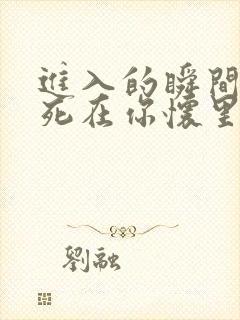 進入的瞬間
死在你懷里
劉融